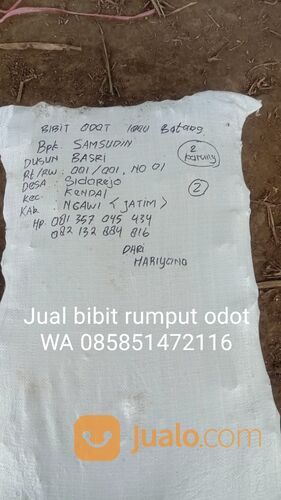 BIBIT ODOT 1000 Batang
Bpk. SAMSUDIN
DUSUN BASRI
Rt/RW. 001/001, NO 01
DESA: Sidorejo
KEC: KENDAL
KAB: NGAWI (JATIM)
HP. 081 357 045 434
082 132 884 816
2 karung
2
DARI
HARIYONO
Jual bibit rumput odot
WA 085851472116
jualo.com